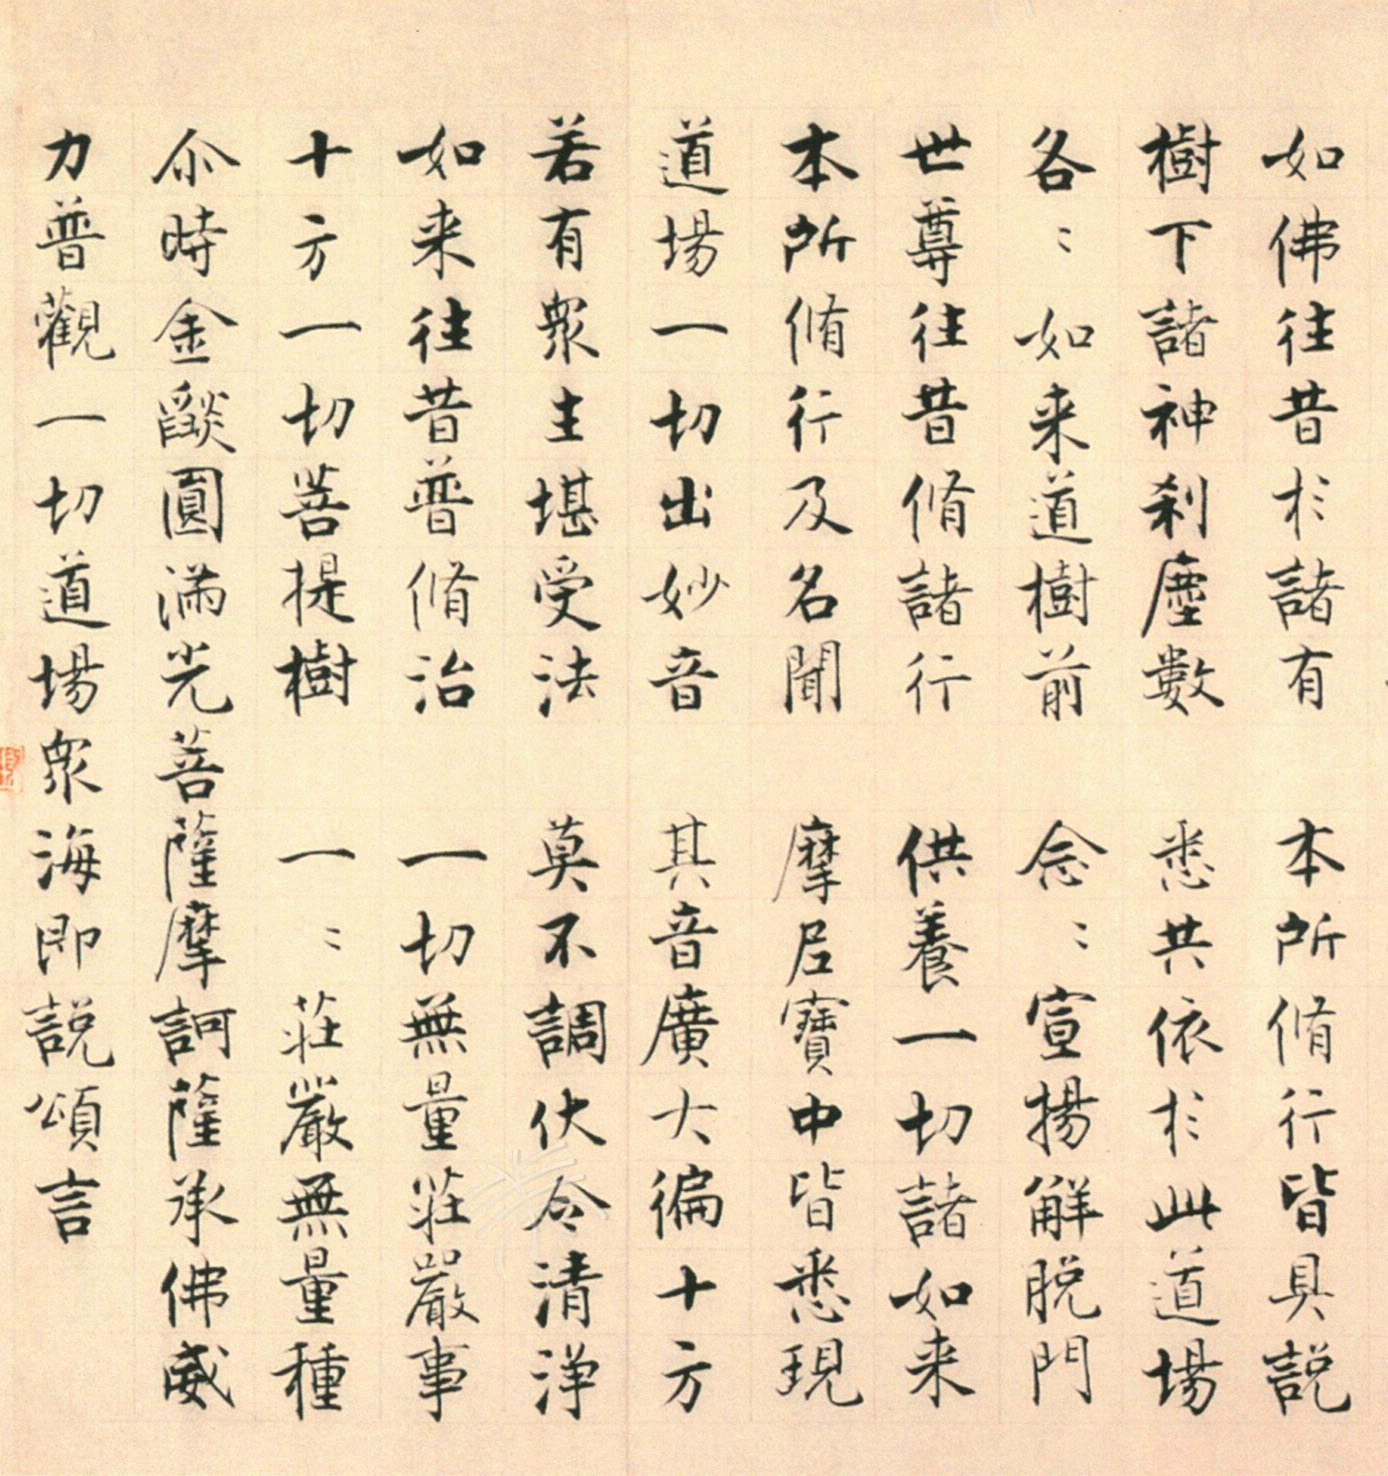 如佛往昔於諸有　本所脩行皆具説
樹下諸神刹塵數　悉共依於此道場
各〻如来道樹前　念〻宣揚解脱門
世尊往昔脩諸行　供養一切諸如来
本所脩行及名聞　摩尼寶中皆悉現
道場一切出妙音　其音廣大徧十方
若有衆生堪受法　莫不調伏令清淨
如来往昔普脩治　一切無量莊嚴事
十方一切菩提樹　一〻莊嚴無量種
尒時金燄圓滿光菩薩摩訶薩承佛威
力普觀一切道場衆海即説頌言